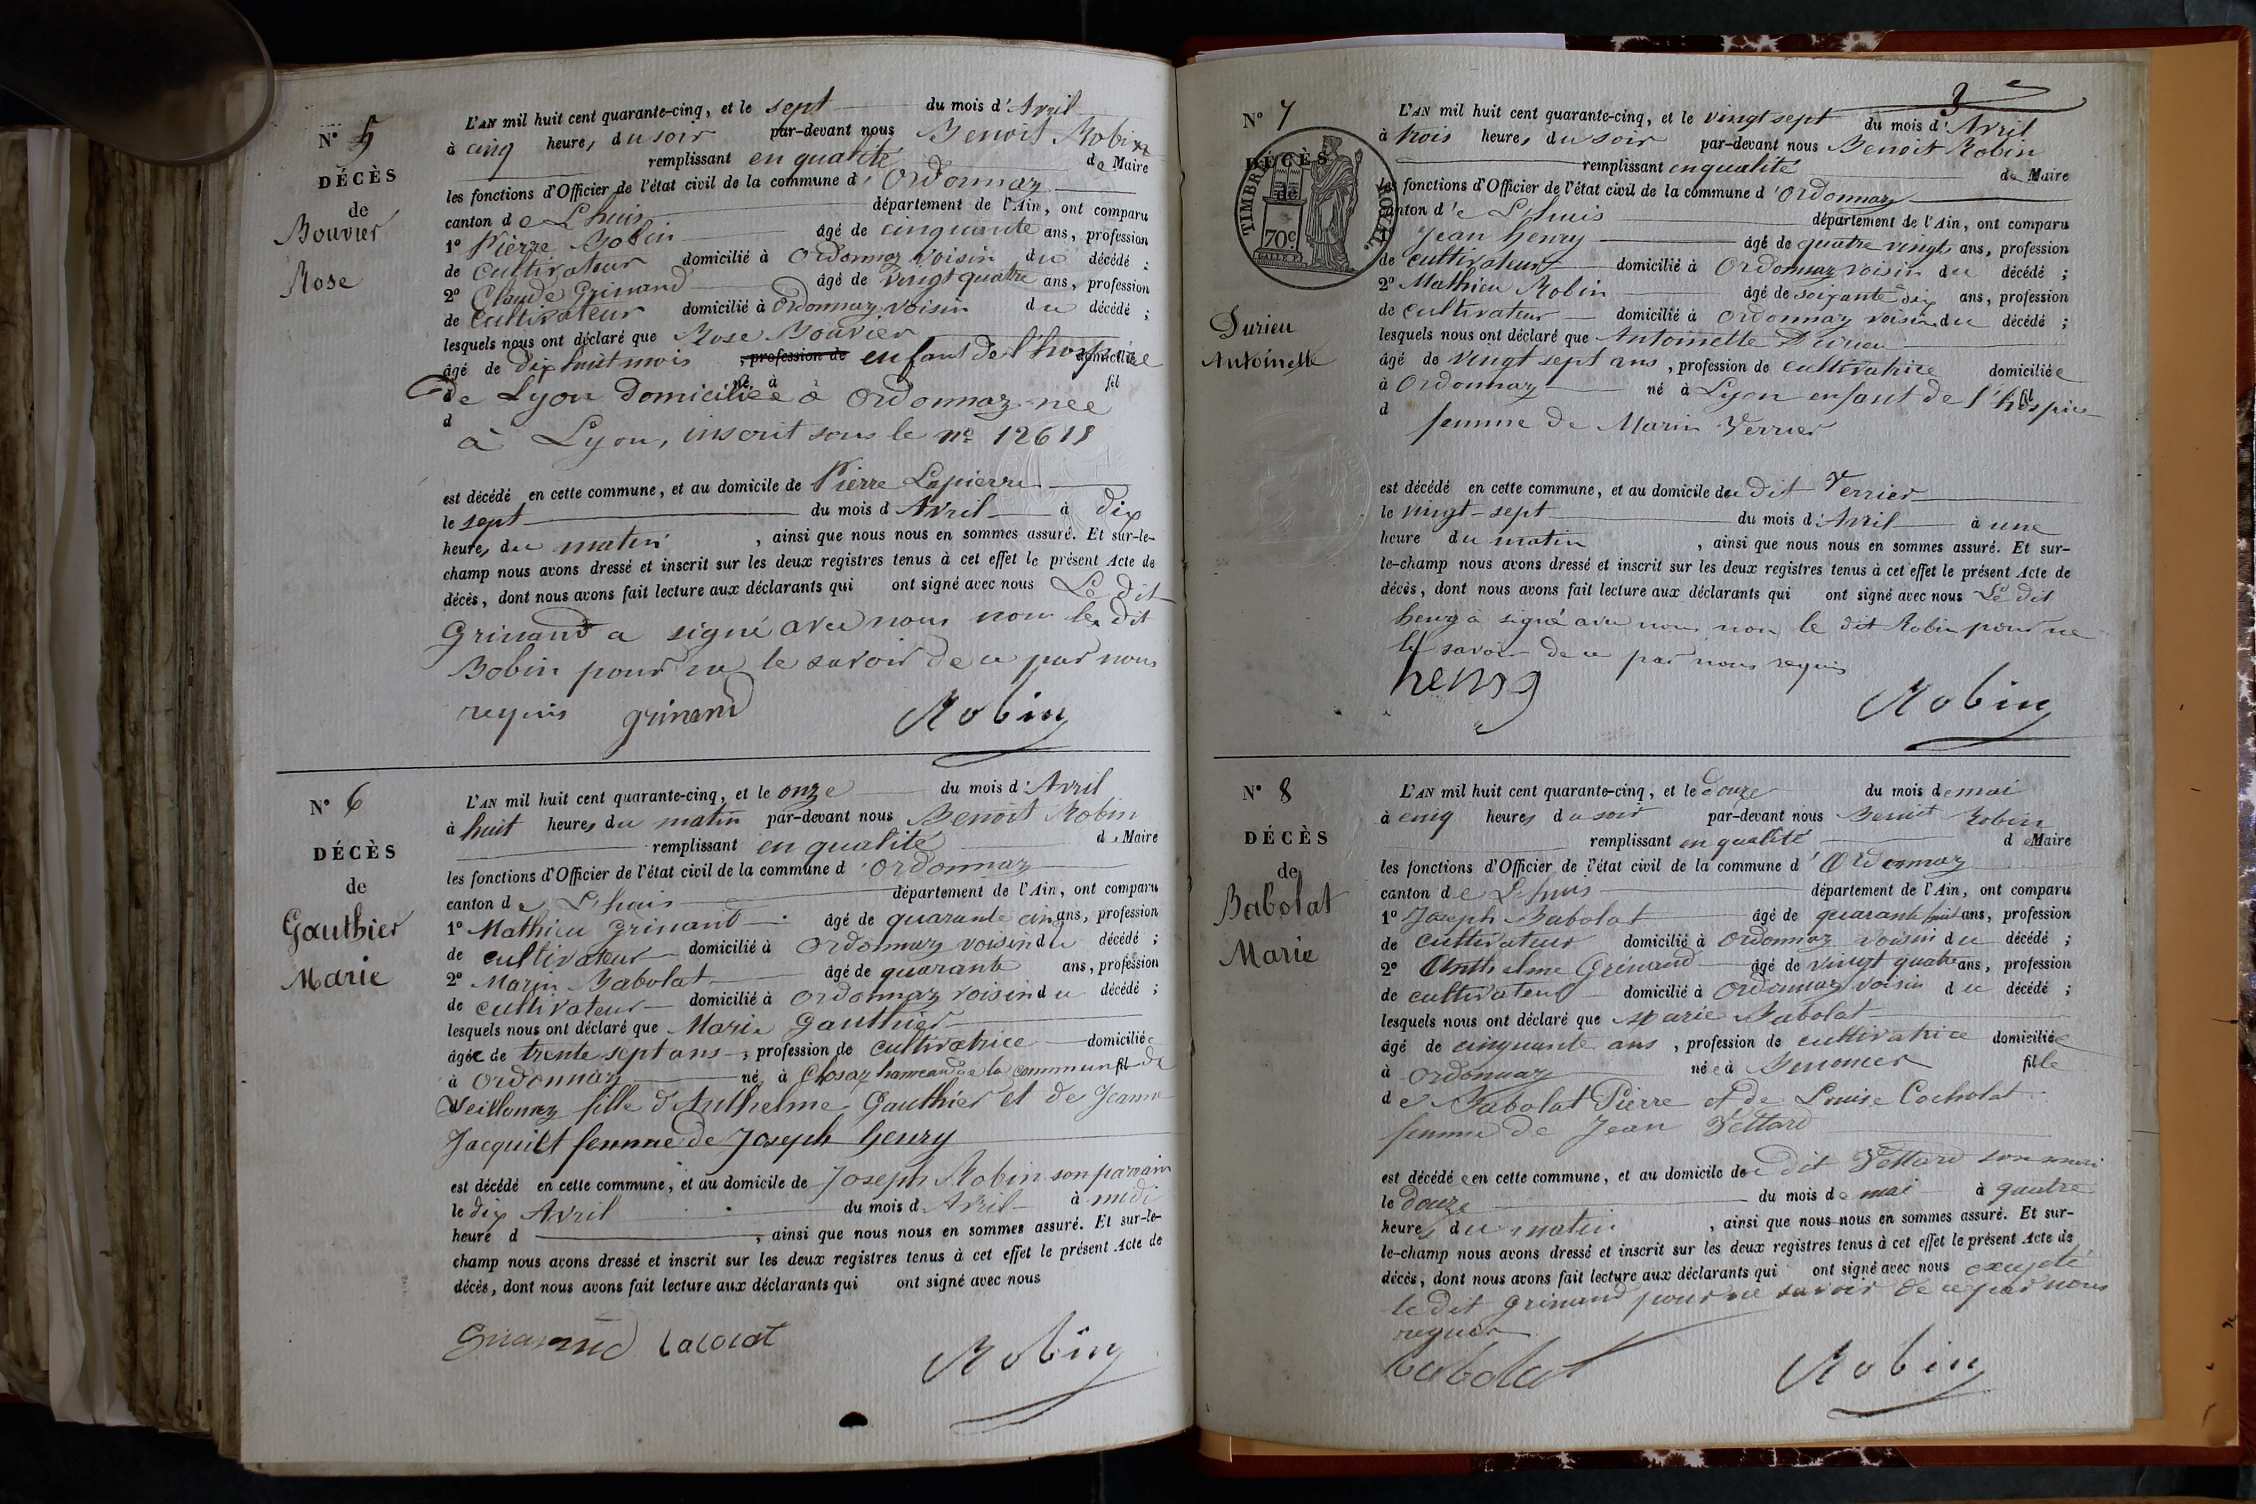 N° 5
DÉCÈS
de
Bouvier
Rose
L'AN mil huit cent quarante-cinq, et le sept du mois d'Avril
à cinq heures du soir par-devant nous Benoit Robin
remplissant en qualité de Maire
les fonctions d'Officier de l'état civil de la commune d'Ordonnaz
canton de L'huis département de l'Ain, ont comparu
1° Pierre Bobin âgé de cinquante ans, profession
de cultivateur domicilié à Ordonnaz voisin du décédé ;
2° Claude Grinand âgé de vingt quatre ans, profession
de cultivateur domicilié à Ordonnaz voisin du décédé ;
lesquels nous ont déclaré que Rose Bouvier
âgé de dix huit mois , profession de enfant de l'hospice domicilié
de Lyon domiciliée à Ordonnaz née né à fil
d à Lyon, inscrit sous le n° 12618
est décédé en cette commune, et au domicile de Pierre Lapierre
le sept du mois d Avril à dix
heures du matin , ainsi que nous nous en sommes assuré. Et sur-le-
champ nous avons dressé et inscrit sur les deux registres tenus à cet effet le présent Acte de
décès, dont nous avons fait lecture aux déclarants qui ont signé avec nous Le dit
Grinand a signé avec nous non le dit
Bobin pour ne le savoir de ce par nous
requis grinand Robin
N° 6
DÉCÈS
de
Gauthier
Marie
L'AN mil huit cent quarante-cinq, et le onze du mois d'Avril
à huit heures du matin par-devant nous Benoit Robin
remplissant en qualité de Maire
les fonctions d'Officier de l'état civil de la commune d'Ordonnaz
canton de L'huis département de l'Ain, ont comparu
1° Mathieu Grinand âgé de quarante cinq ans, profession
de cultivateur domicilié à Ordonnaz voisin du décédé ;
2° Marin Babolat âgé de quarante ans, profession
de cultivateur domicilié à Ordonnaz voisin du décédé ;
lesquels nous ont déclaré que Marie Gauthier
âgée de trente sept ans , profession de cultivatrice domiciliée
à Ordonnaz né à hameau de la commune fil de
fille d'Anthelme Gauthier et de Jeanne
Jacquilt femme de Joseph henry
est décédé en cette commune, et au domicile de Joseph Robin son parrain
le dix Avril du mois d Avril à midi
heure d , ainsi que nous nous en sommes assuré. Et sur-le-
champ nous avons dressé et inscrit sur les deux registres tenus à cet effet le présent Acte de
décès, dont nous avons fait lecture aux déclarants qui ont signé avec nous
babolat Robin
3
N° 7
DÉCÈS
de
TIMBRE ROYAL
70c
Durieu
Antoinette
L'AN mil huit cent quarante-cinq, et le vingt sept du mois d'Avril
à trois heures du soir par-devant nous Benoit Robin
remplissant en qualité de Maire
les fonctions d'Officier de l'état civil de la commune d'Ordonnaz
canton d'e L'huis département de l'Ain, ont comparu
Jean henry âgé de quatre vingts ans, profession
de cultivateur domicilié à Ordonnaz voisin du décédé ;
2° Mathieu Robin âgé de soixante dix ans, profession
de cultivateur domicilié à Ordonnaz voisin du décédé ;
lesquels nous ont déclaré que Antoinette Durieu
âgé de vingt sept ans , profession de cultivatrice domiciliée
à Ordonnaz né à Lyon enfant de l'hospice fil
d femme de Marin Verrier
est décédé en cette commune, et au domicile du dit Verrier
le vingt-sept du mois d'Avril à une
heure du matin , ainsi que nous nous en sommes assuré. Et sur-
le-champ nous avons dressé et inscrit sur les deux registres tenus à cet effet le présent Acte de
décès, dont nous avons fait lecture aux déclarants qui ont signé avec nous Le dit
henry à signé avec nous non le dit Robin pour ne
le savoir de ce par nous requis
henry Robin
N° 8
DÉCÈS
de
Babolat
Marie
L'AN mil huit cent quarante-cinq, et le douze du mois de mai
à cinq heures du soir par-devant nous Benoit Robin
remplissant en qualité de Maire
les fonctions d'Officier de l'état civil de la commune d'Ordonnaz
canton de L'huis département de l'Ain, ont comparu
1° Joseph Babolat âgé de quarante huit ans, profession
de cultivateur domicilié à Ordonnaz voisin du décédé ;
2° Anthelme Grinand âgé de vingt quatre ans, profession
de cultivateur domicilié à Ordonnaz voisin du décédé ;
lesquels nous ont déclaré que Marie Babolat
âgé de cinquante ans , profession de cultivatrice domiciliée
à Ordonnaz née à fille
de Babolat Pierre et de Louise Cocholat
femme de Jean Vettard
est décédée en cette commune, et au domicile du dit Vettard son mari
le douze du mois de mai à quatre
heures du matin , ainsi que nous nous en sommes assuré. Et sur-
le-champ nous avons dressé et inscrit sur les deux registres tenus à cet effet le présent Acte de
décès, dont nous avons fait lecture aux déclarants qui ont signé avec nous excepté
le dit Grinand pour ne savoir de ce par nous
requis
babolat Robin